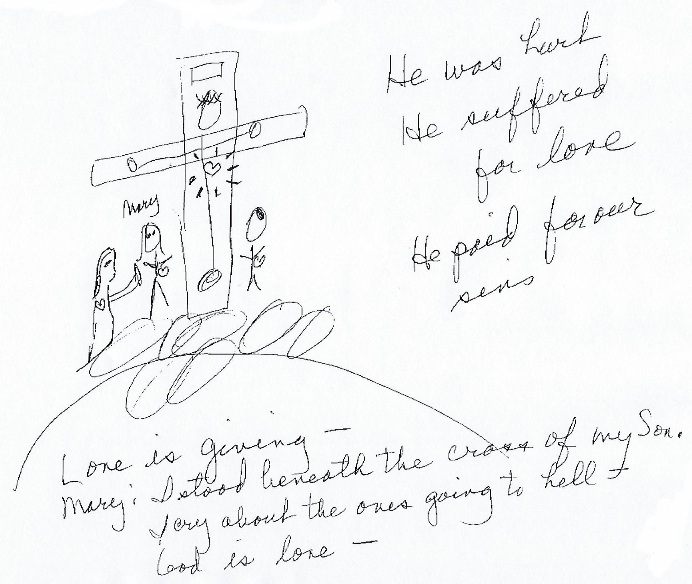 He was hurt
He suffered
for love
He paid for our
sins
Mary
Love is giving —
Mary: I stood beneath the cross of my Son.
I cry about the ones going to hell –
God is love —